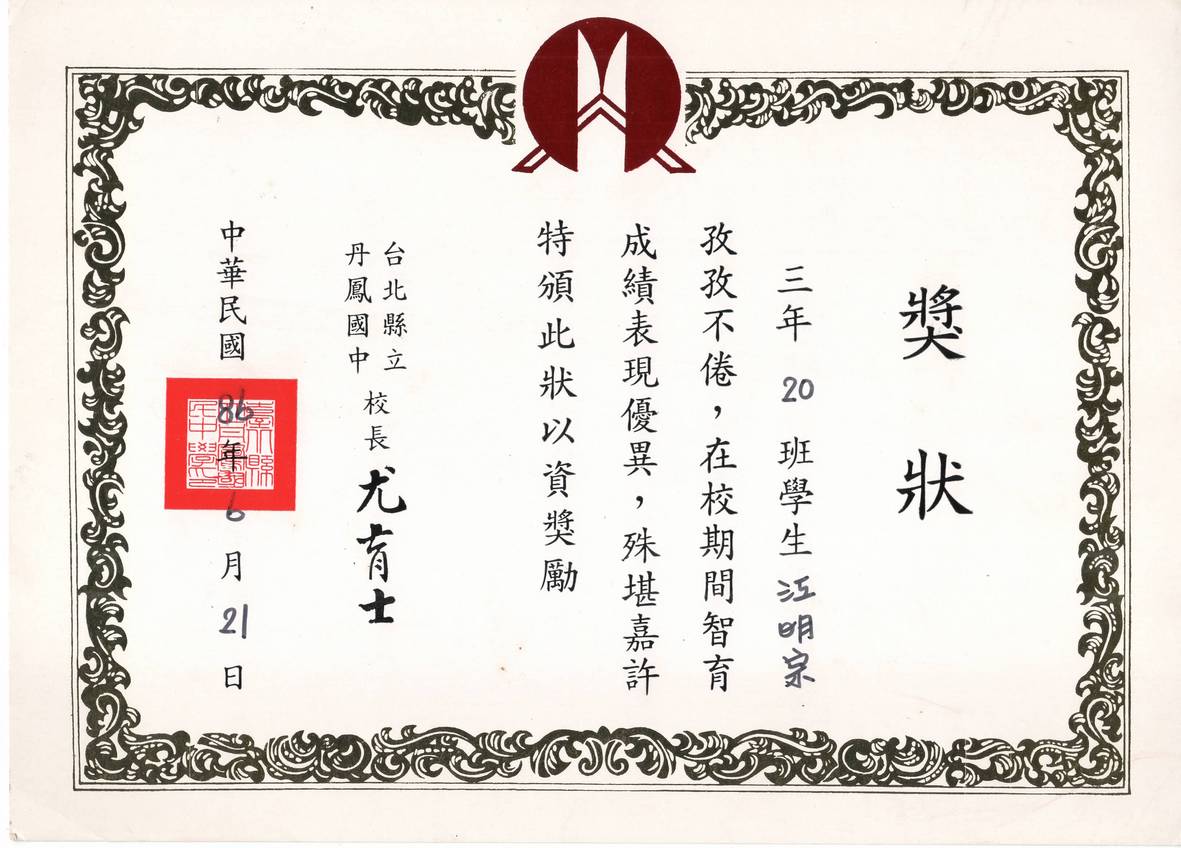 獎狀
三年 20 班學生江明宗
孜孜不倦，在校期間智育
成績表現優異，殊堪嘉許
特頒此狀以資獎勵
台北縣立
丹鳳國中
校長 尤育士
中華民國 86 年 6 月 21 日